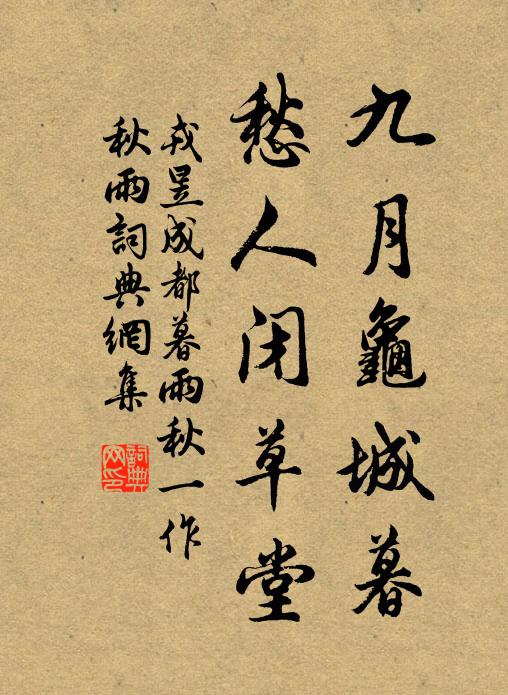 九月龜城暮
愁人闭草堂
戎昱成都暮雨秋一作
秋雨詞典網集
詞典
网印